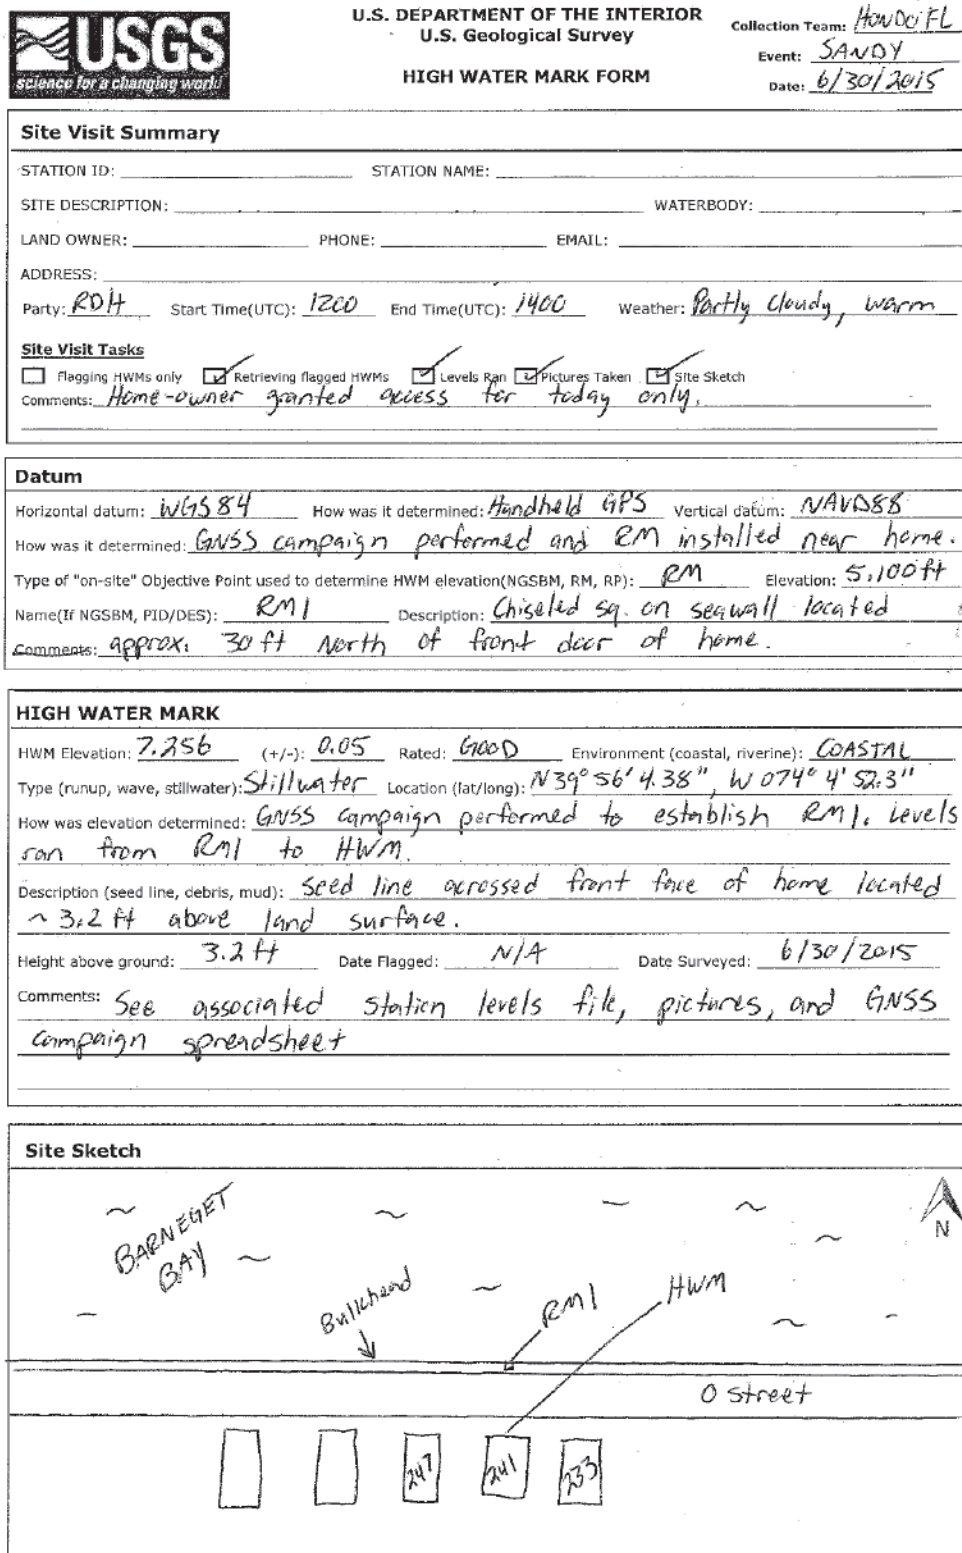 USGS
science for a changing world
U.S. DEPARTMENT OF THE INTERIOR
U.S. Geological Survey
HIGH WATER MARK FORM
Collection Team: HowDoiFL
Event: SANDY
Date: 6/30/2015
Site Visit Summary
STATION ID: STATION NAME:
SITE DESCRIPTION: WATERBODY:
LAND OWNER: PHONE: EMAIL:
ADDRESS:
Party: RDH Start Time(UTC): 1200 End Time(UTC): 1400 Weather: Partly Cloudy, warm
Site Visit Tasks
Flagging HWMs only Retrieving flagged HWMs Levels Ran Pictures Taken Site Sketch
Comments: Home-owner granted access for today only.
Datum
Horizontal datum: WGS84 How was it determined: Handheld GPS Vertical datum: NAVD88
How was it determined: GNSS campaign performed and RM installed near home.
Type of "on-site" Objective Point used to determine HWM elevation(NGSBM, RM, RP): RM Elevation: 5.100ft
Name(If NGSBM, PID/DES): RM1 Description: Chiseled sq. on seawall located
Comments: approx. 30 ft North of front door of home.
HIGH WATER MARK
HWM Elevation: 7.256 (+/-): 0.05 Rated: GOOD Environment (coastal, riverine): COASTAL
Type (runup, wave, stillwater): Stillwater Location (lat/long): N39° 56' 4.38", W 074° 4' 52.3"
How was elevation determined: GNSS campaign performed to establish RM1. Levels
ran from RM1 to HWM.
Description (seed line, debris, mud): Seed line acrossed front face of home located
~ 3.2 ft above land surface.
Height above ground: 3.2 ft Date Flagged: N/A Date Surveyed: 6/30/2015
Comments: See associated station levels file, pictures, and GNSS
campaign spreadsheet
Site Sketch
BARNEGET
BAY
N
Bulkhead
RM1
HWM
O Street
247 241 233